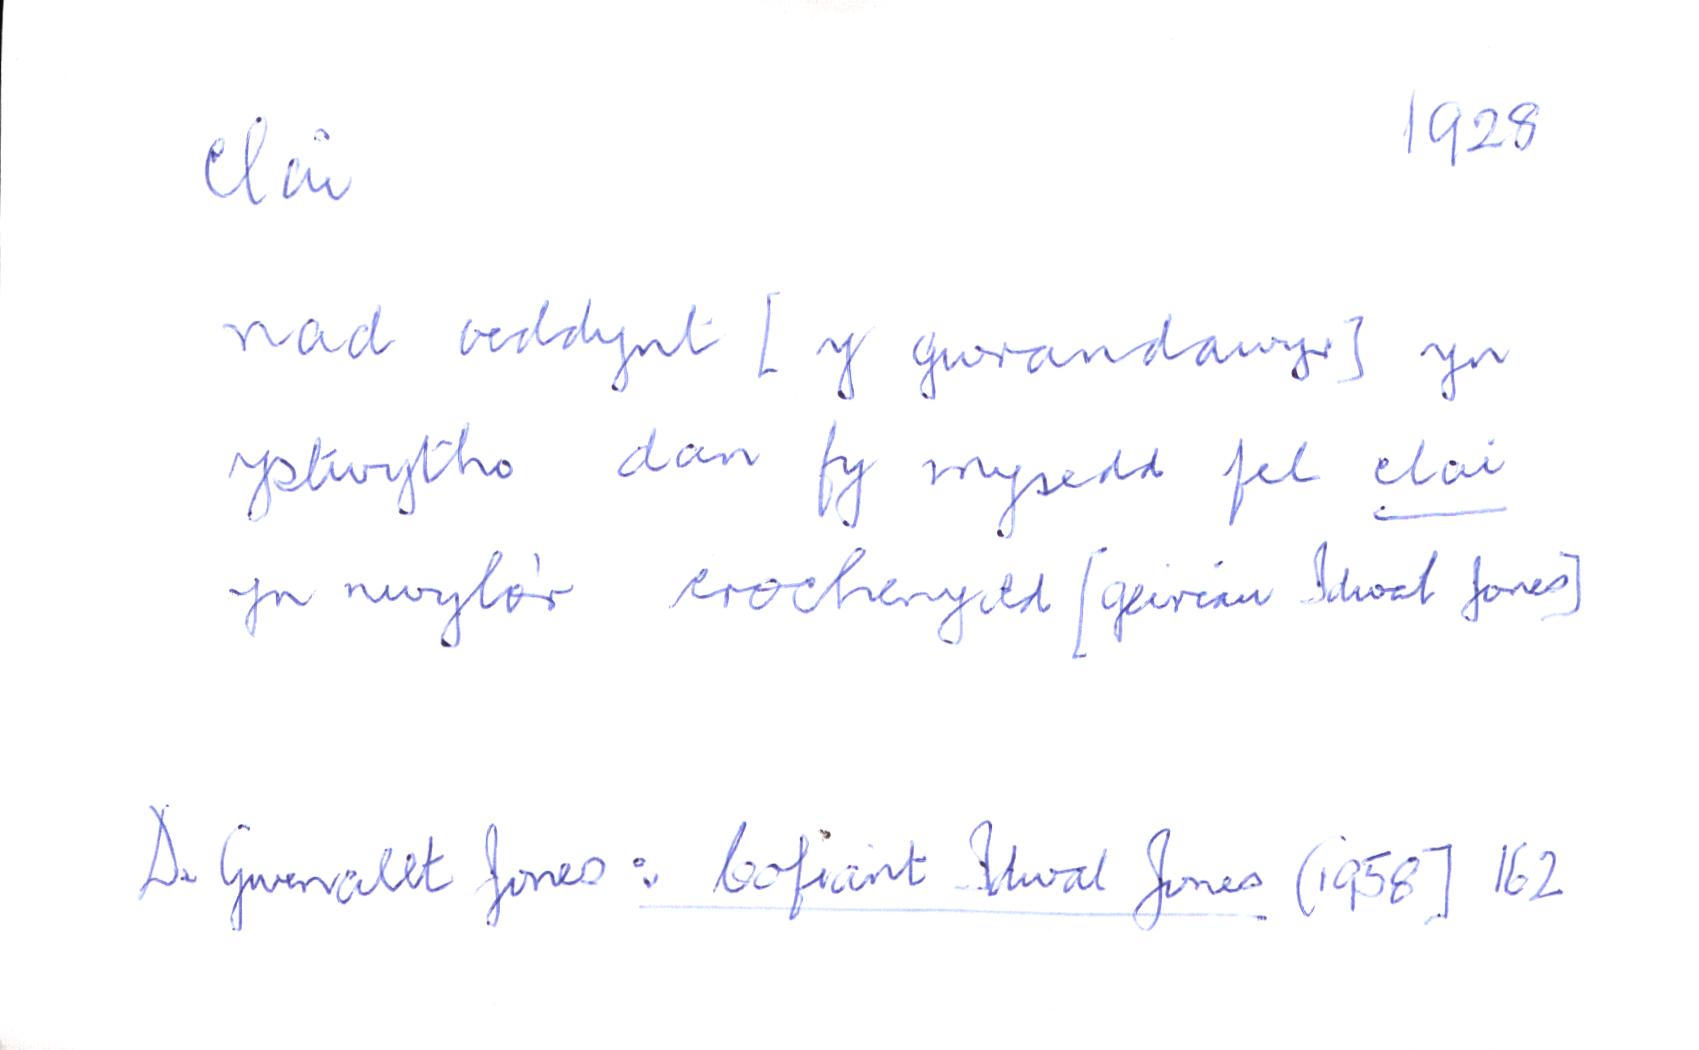 clai 1928
nad oeddynt [y gwrandawyr] yn
ystwytho dan fy mysedd fel clai
yn nwylo'r crochenydd [geiriau Idwal Jones]
D. Gwenallt Jones: Cofiant Idwal Jones (1958] 162